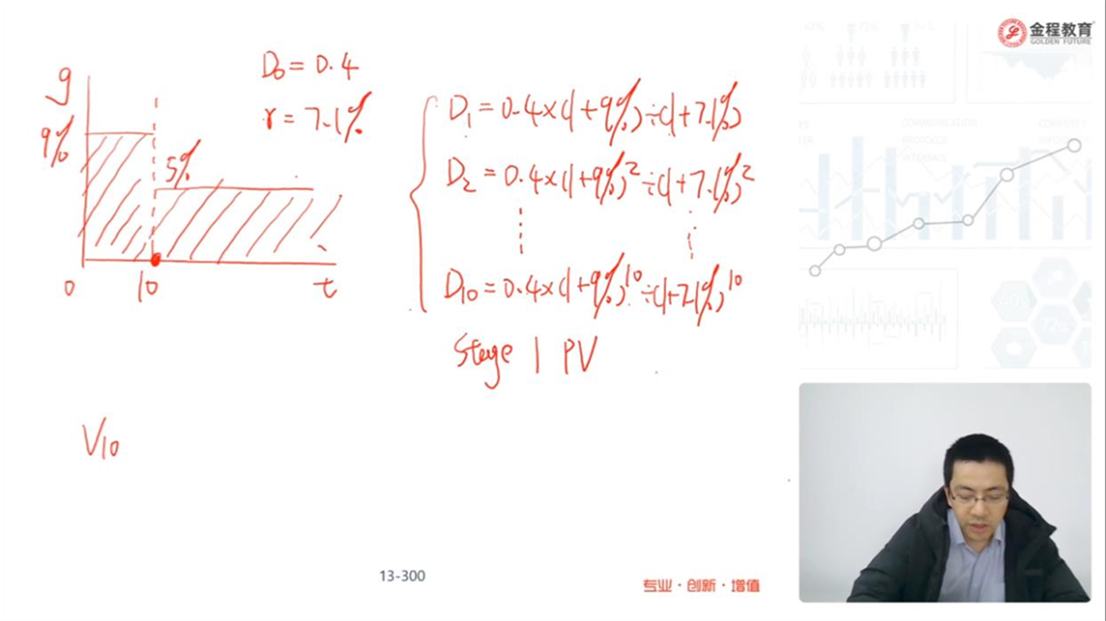 金程教育
GOLDEN FUTURE
D₀ = 0.4
r = 7.1%
g
9%
5%
0
10
t
D₁ = 0.4×(1+9%)÷(1+7.1%)
D₂ = 0.4×(1+9%)²÷(1+7.1%)²
D₁₀ = 0.4×(1+9%)¹⁰÷(1+7.1%)¹⁰
Stage 1 PV
V₁₀
13-300
专业·创新·增值